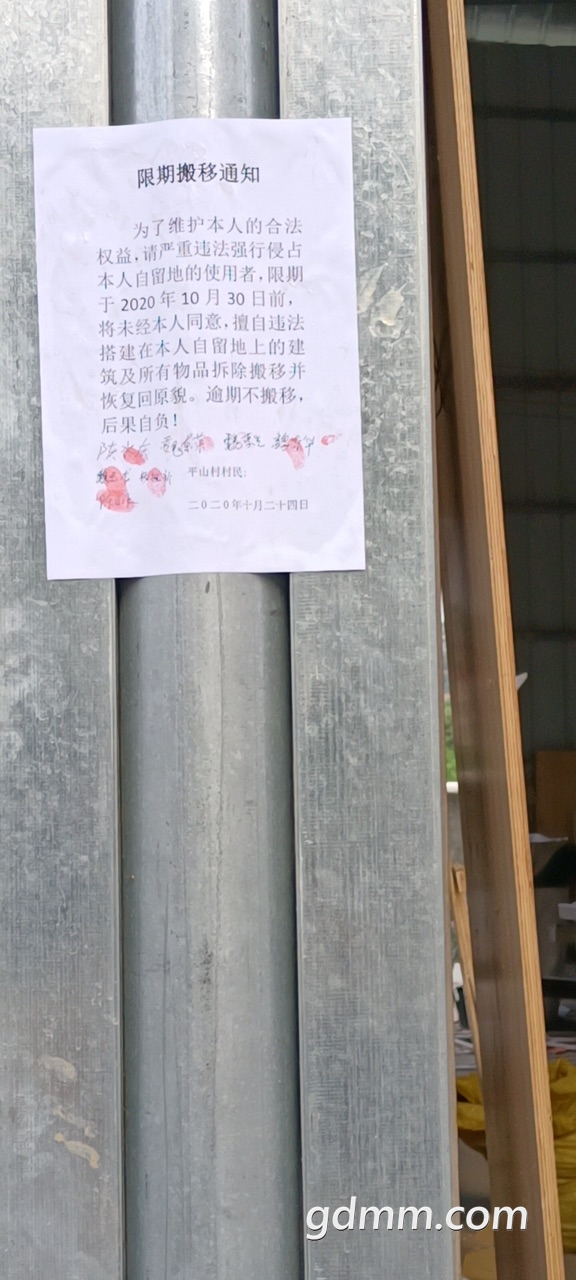 限期搬移通知
为了维护本人的合法
权益,请严重违法强行侵占
本人自留地的使用者,限期
于 2020 年 10 月 30 日前,
将未经本人同意,擅自违法
搭建在本人自留地上的建
筑及所有物品拆除搬移并
恢复回原貌。逾期不搬移,
后果自负!
平山村村民:
二〇二〇年十月二十四日
gdmm.com